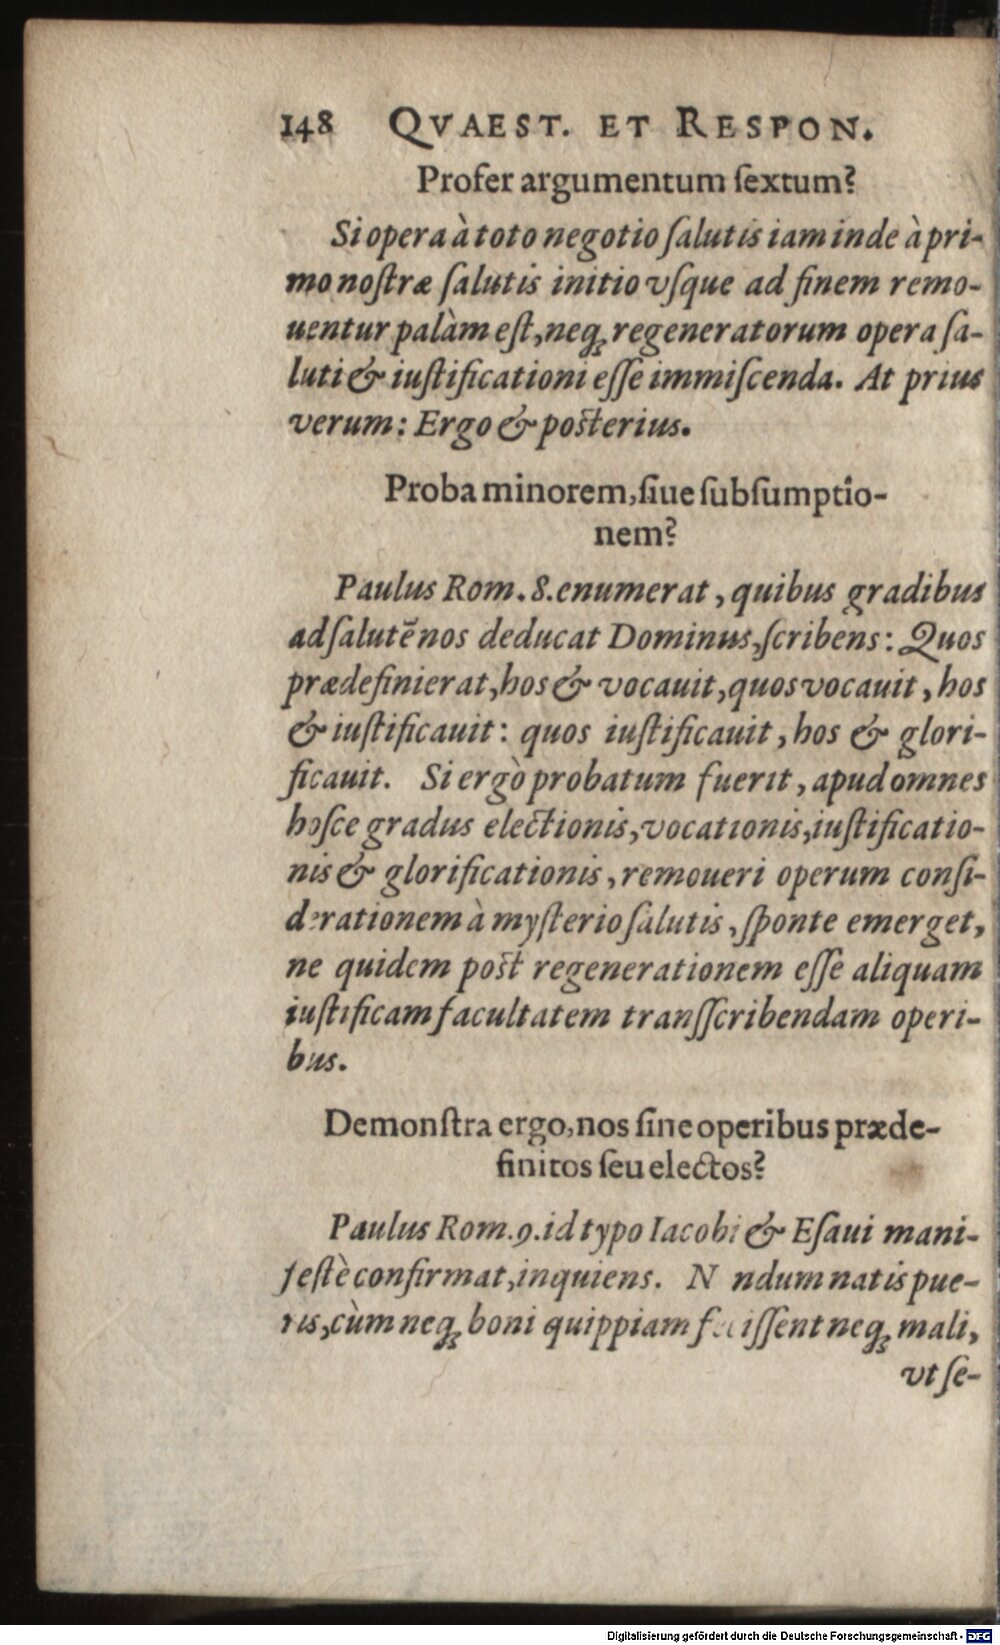 148 QVAEST. ET RESPON.
Profer argumentum ſextum?
Si opera à toto negotio ſalutis iam inde à pri-
mo noſtræ ſalutis initio vſque ad finem remo-
uentur palàm eſt, neq; regeneratorum opera ſa-
luti & iuſtificationi eſſe immiſcenda. At prius
verum: Ergo & poſterius.
Proba minorem, ſiue ſubſumptio-
nem?
Paulus Rom. 8. enumerat, quibus gradibus
ad ſalutē nos deducat Dominus, ſcribens: Quos
prædefinierat, hos & vocauit, quos vocauit, hos
& iuſtificauit: quos iuſtificauit, hos & glori-
ficauit. Si ergò probatum fuerit, apud omnes
hoſce gradus electionis, vocationis, iuſtificatio-
nis & glorificationis, remoueri operum conſi-
derationem à myſterio ſalutis, ſponte emerget,
ne quidem poſt regenerationem eſſe aliquam
iuſtificam facultatem tranſſcribendam operi-
bus.
Demonſtra ergo, nos ſine operibus præde-
finitos ſeu electos?
Paulus Rom. 9. id typo Iacobi & Eſaui mani-
feſtè confirmat, inquiens. N ndum natis pue-
ris, cùm neq; boni quippiam feciſſent neq; mali,
vt ſe-
Digitalisierung gefördert durch die Deutsche Forschungsgemeinschaft - DFG